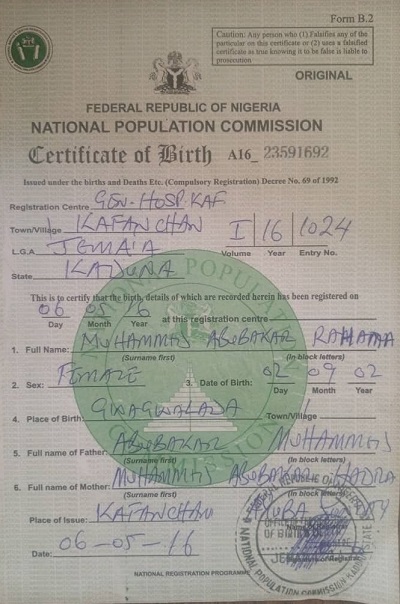 Form B.2
Caution: Any person who (1) Falsifies any of the
particular on this certificate or (2) uses a falsified
certificate as true knowing it to be false is liable to
prosecution
ORIGINAL
FEDERAL REPUBLIC OF NIGERIA
NATIONAL POPULATION COMMISSION
Certificate of Birth A16_ 23591692
Issued under the births and Deaths Etc. (Compulsory Registration) Decree No. 69 of 1992
Registration Centre GEN-HOSP KAF
Town/Village KAFANCHAN I 16 1024
L.G.A JEMA'A Volume Year Entry No.
State KADUNA
This is to certify that the birth, details of which are recorded herein has been registered on
06 05 16 at this registration centre
Day Month Year
1. Full Name: MUHAMMAD ABUBAKAR RAHAMA
(Surname first) (In block letters)
2. Sex: FEMALE 3. Date of Birth: 02 09 02
Day Month Year
4. Place of Birth: GWAGWALADA Town/Village
5. Full name of Father: ABUBAKAR MUHAMMAD
(Surname first) (In block letters)
6. Full name of Mother: MUHAMMAD ABUBAKAR
(Surname first) (In block letters)
Place of Issue: KAFANCHAN
Date: 06-05-16
NATIONAL REGISTRATION PROGRAMME
NATIONAL POPULATION COMMISSION